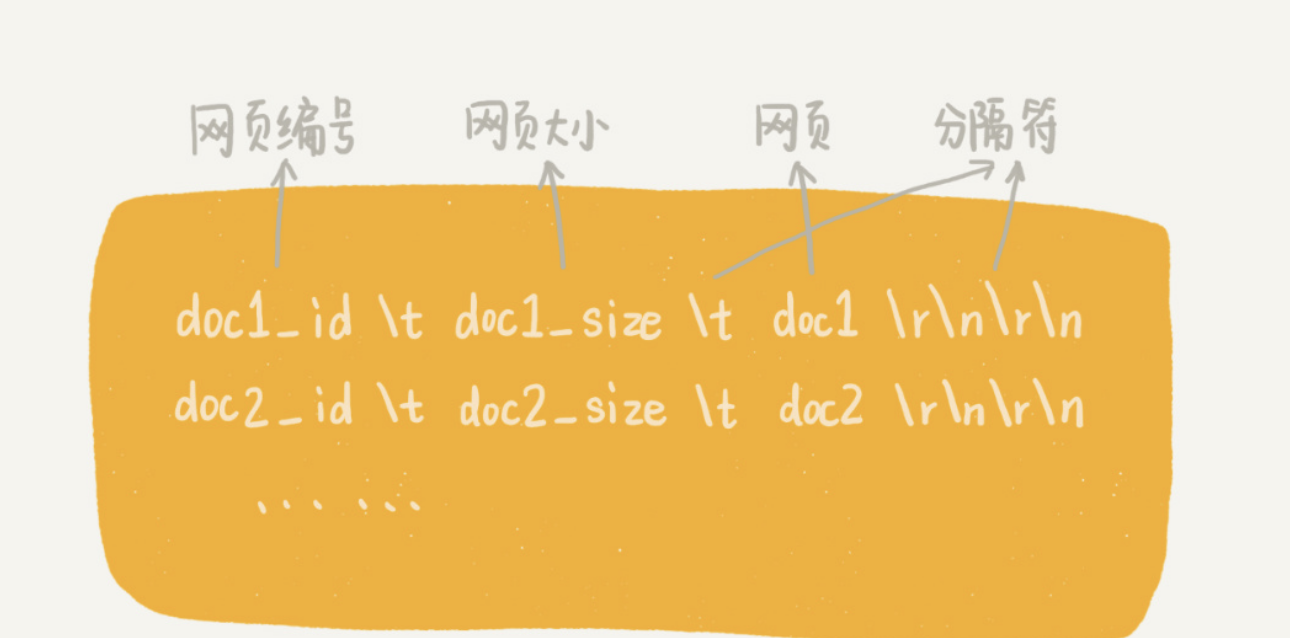 网页编号 网页大小 网页 分隔符
doc1_id \t doc1_size \t doc1 \r\n\r\n
doc2_id \t doc2_size \t doc2 \r\n\r\n
......